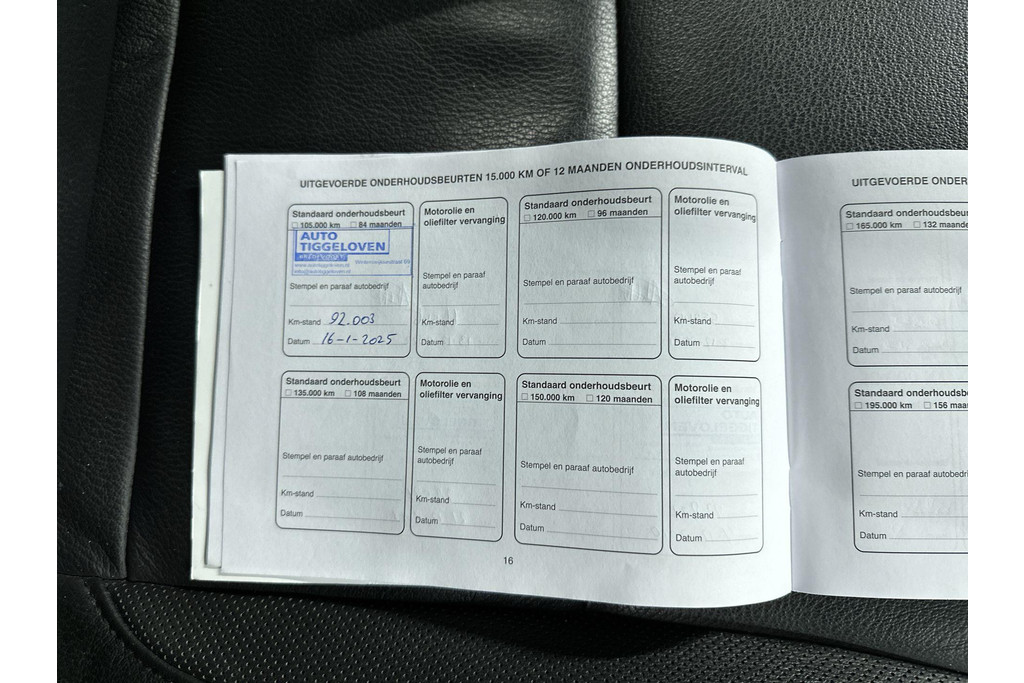 UITGEVOERDE ONDERHOUDSBEURTEN 15.000 KM OF 12 MAANDEN ONDERHOUDSINTERVAL
Standaard onderhoudsbeurt
105.000 km 84 maanden
AUTO
TIGGELOVEN
www.autotiggeloven.nl
info@autotiggeloven.nl
Stempel en paraaf autobedrijf
Km-stand 92.003
Datum 16-1-2025
Motorolie en
oliefilter vervanging
Stempel en paraaf
autobedrijf
Km-stand
Datum
Standaard onderhoudsbeurt
120.000 km 96 maanden
Stempel en paraaf autobedrijf
Km-stand
Datum
Motorolie en
oliefilter vervanging
Stempel en paraaf
autobedrijf
Km-stand
Datum
Standaard onderhoudsbeurt
135.000 km 108 maanden
Stempel en paraaf autobedrijf
Km-stand
Datum
Motorolie en
oliefilter vervanging
Stempel en paraaf
autobedrijf
Km-stand
Datum
Standaard onderhoudsbeurt
150.000 km 120 maanden
Stempel en paraaf autobedrijf
Km-stand
Datum
Motorolie en
oliefilter vervanging
Stempel en paraaf
autobedrijf
Km-stand
Datum
16
UITGEVOERDE ONDER
Standaard onderhoudsbeur
165.000 km 132 maande
Stempel en paraaf autobedrijf
Km-stand
Datum
Standaard onderhoudsb
195.000 km 156 maa
Stempel en paraaf autobedri
Km-stand
Datum